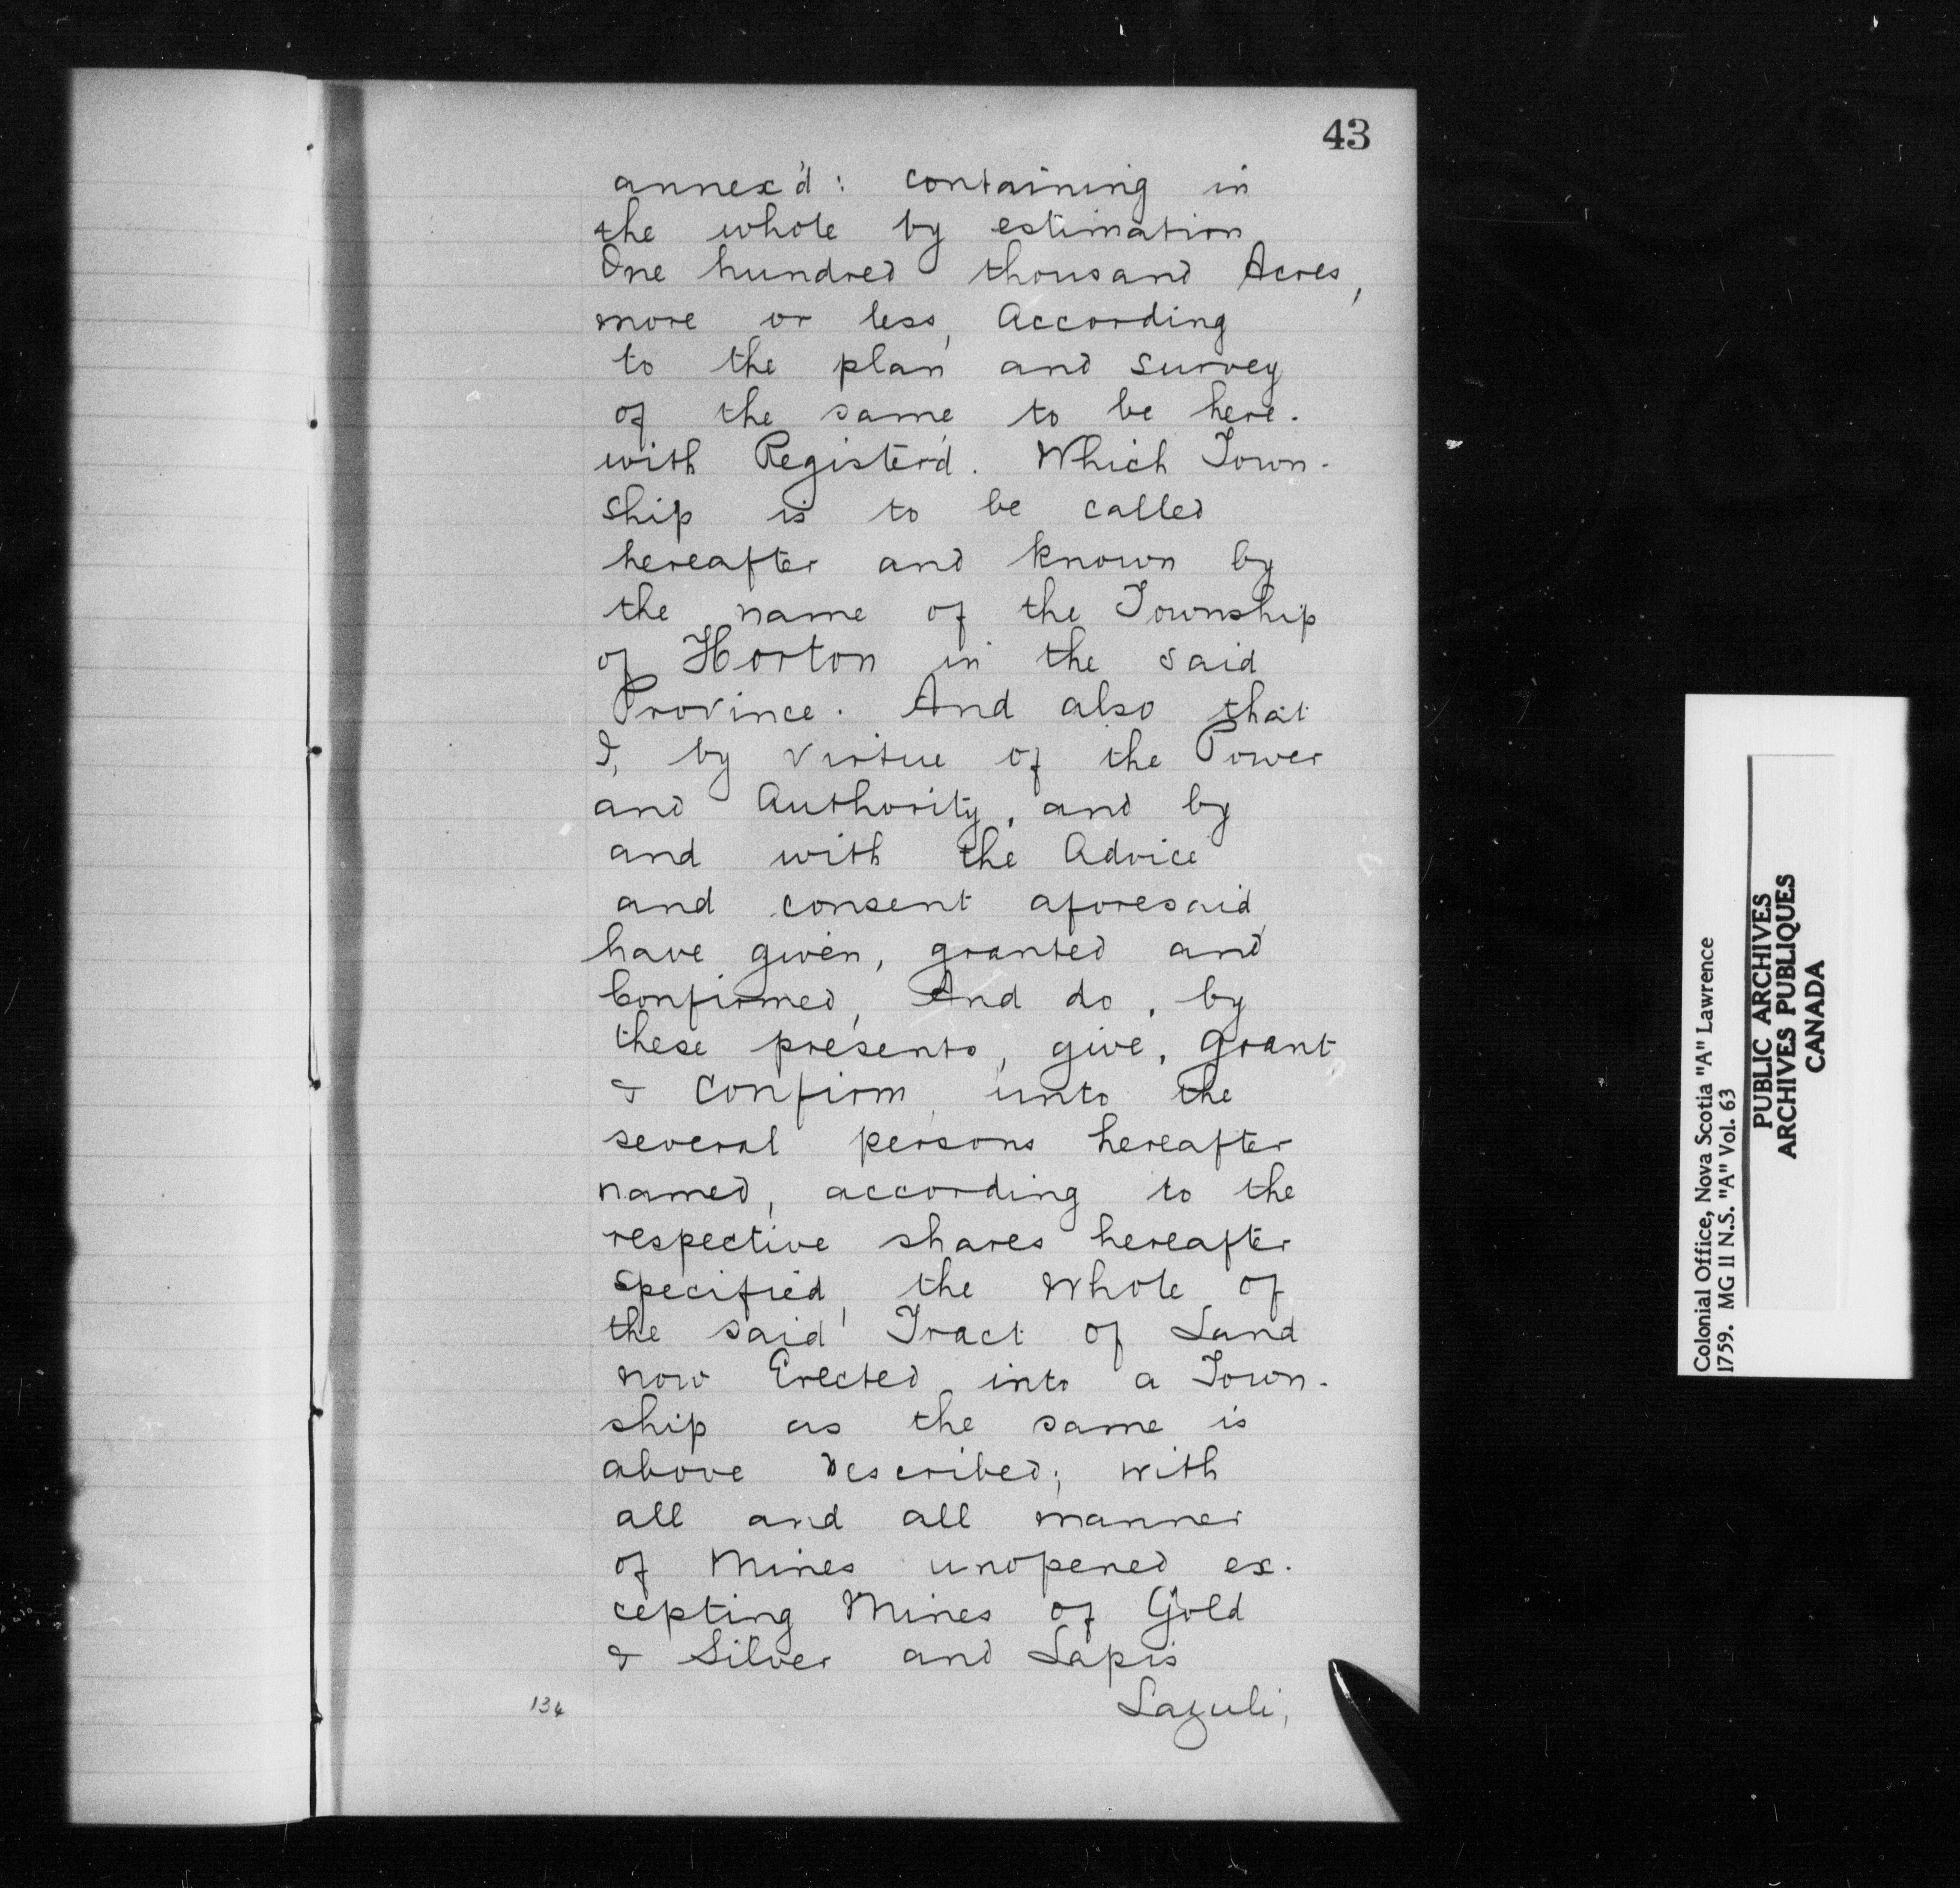 43
annex'd: containing in
the whole by estimation
One hundred thousand Acres,
more or less, According
to the plan and survey
of the same to be here-
with Register'd. Which Town-
ship is to be called
hereafter and known by
the name of the Township
of Horton in the said
Province. And also that
I, by virtue of the Power
and Authority, and by
and with the Advice
and consent aforesaid,
have given, granted and
Confirmed, And do, by
these presents, give, grant
& confirm, unto the
several persons hereafter
named, according to the
respective shares hereafter
specified, the Whole of
the said Tract of Land
now Erected into a Town-
ship as the same is
above described; with
all and all manner
of Mines unopened ex-
cepting Mines of Gold
& Silver and Lapis
Lazuli,
134
Colonial Office, Nova Scotia "A" Lawrence
1759. MG 11 N.S. "A" Vol. 63
PUBLIC ARCHIVES
ARCHIVES PUBLIQUES
CANADA